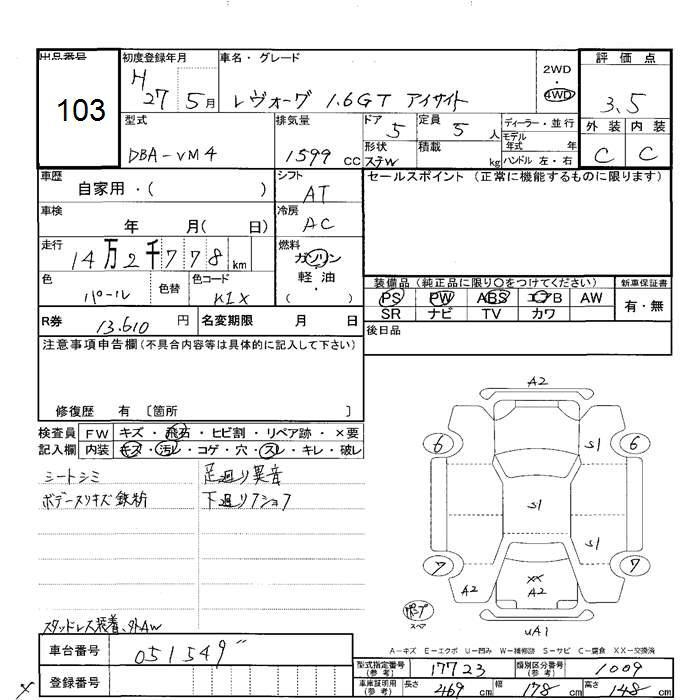 出品番号
103
初度登録年月
H
27 5月
車名・グレード
レヴォーグ 1.6GT アイサイト
2WD
・
4WD
評価点
3.5
型式
DBA-VM4
排気量
1599 CC
ドア
5
定員
5 人
形状
ステW
積載
kg
ディーラー・並行
モデル
年式 年
ハンドル 左・右
外装 内装
C C
車歴
自家用・( )
シフト
AT
セールスポイント (正常に機能するものに限ります)
車検
年 月( 日)
冷房
AC
走行
14万2千778 km
燃料
ガソリン
軽・油
( )
色
パール
色替
色コード
K1X
装備品 (純正品に限り○をつけてください)
新車保証書
PS PW ABS エアB AW
有・無
SR ナビ TV カワ
R券
13.610 円
名変期限 月 日
後日品
注意事項申告欄 (不具合内容等は具体的に記入して下さい)
修復歴 有 〔箇所 〕
検査員
記入欄
FW キズ・飛石・ヒビ割・リペア跡・×要
内装 キズ・汚レ・コゲ・穴・スレ・キレ・破レ
シートシミ
足廻り異音
ボデースリキズ鉄粉
下廻り
スタッドレス装着、外AW
車台番号
051549
登録番号
A2
6
S1
6
S1
S1
7
7
A2
XX
A2
スペア
UA1
A-キズ E-エクボ U-凹み W-補修跡 S-サビ C-腐食 XX-交換済
型式指定番号
(参考)
17723
類別区分番号
(参考)
1009
車庫証明用
(参考)
長さ
469 cm
幅
178 cm
高さ
148 cm